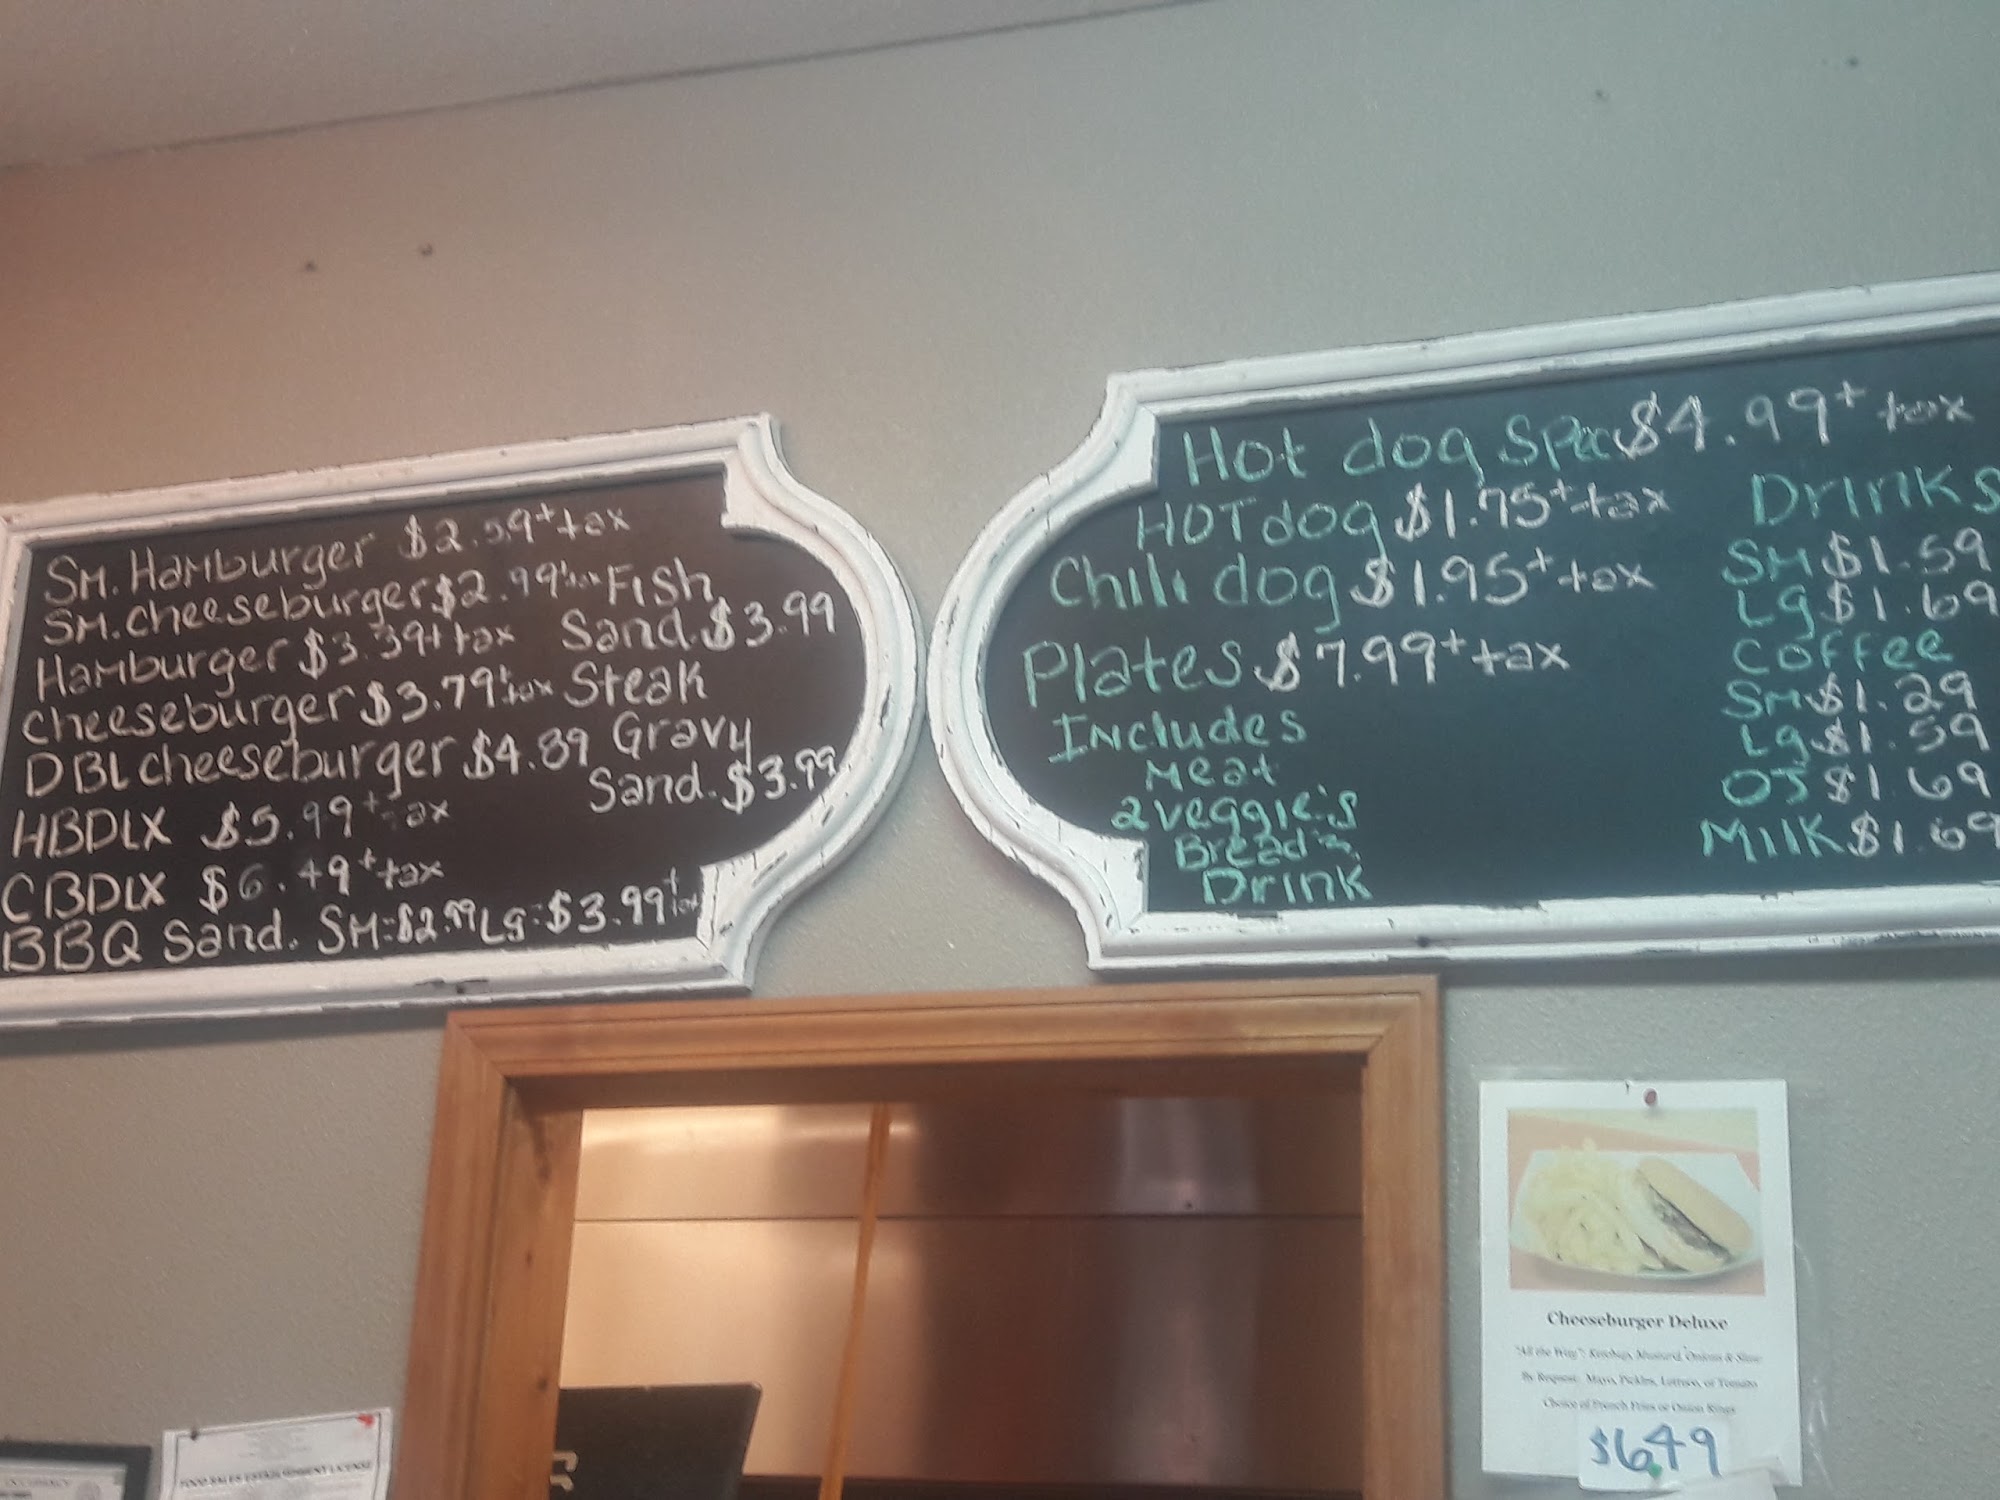 Sm. Hamburger $2.59+tax
Sm. cheeseburger $2.99+tax
Hamburger $3.39+tax
cheeseburger $3.79+tax
DBL cheeseburger $4.89
HBDLX $5.99+tax
CBDLX $6.49+tax
BBQ Sand. SM=$2.99 Lg=$3.99+tax
FISH
Sand. $3.99
Steak
Gravy
Sand. $3.99
Hot dog Spec $4.99+tax
HOT dog $1.75+tax
Chili dog $1.95+tax
Plates $7.99+tax
Includes
Meat
2 veggie's
Bread
Drink
Drinks
SM $1.59
Lg $1.69
Coffee
SM $1.29
Lg $1.59
OJ $1.69
Milk $1.69
Cheeseburger Deluxe
"All the Way": Ketchup, Mustard, Onions & Slaw
By Request: Mayo, Pickles, Lettuce, or Tomato
Choice of French Fries or Onion Rings
$6.49
FOOD SALES ESTABLISHMENT LICENSE